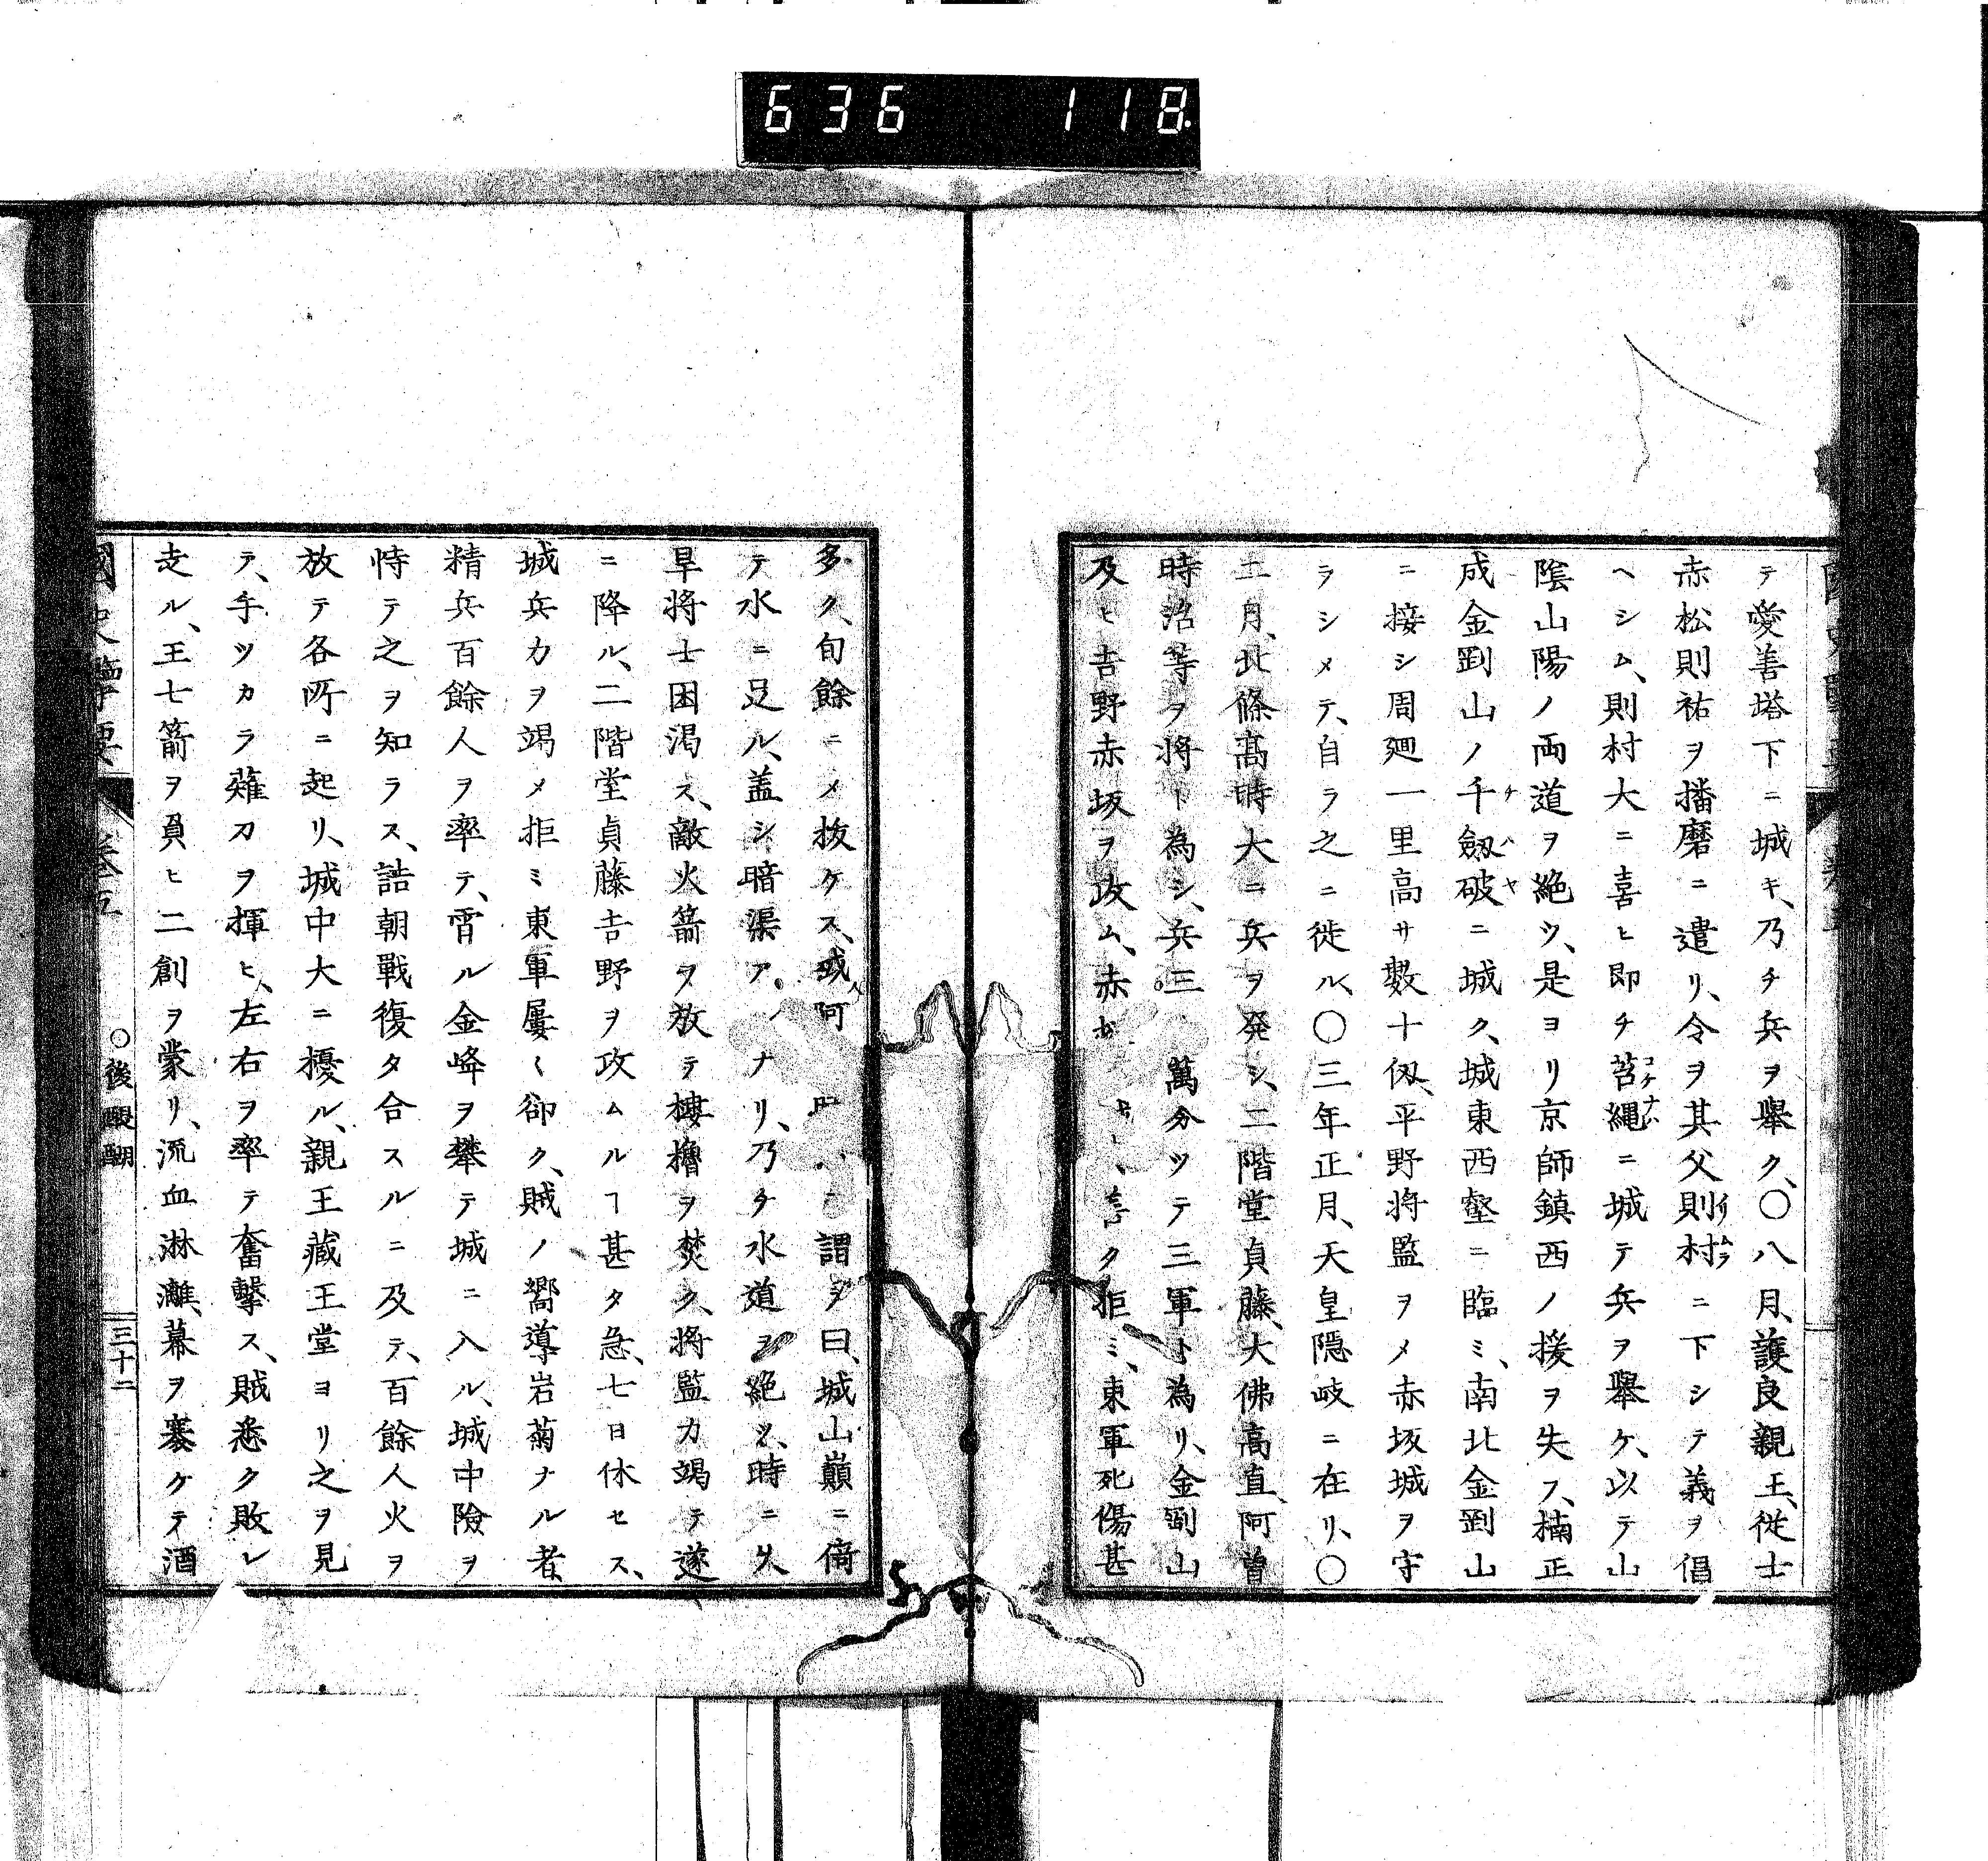 636 118
テ愛善塔下ニ城キ、乃チ兵ヲ舉ク、〇八月、護良親王、従士
赤松則祐ヲ播磨ニ遣リ、令ヲ其父則村ニ下シテ義ヲ倡
ヘシム、則村大ニ喜ヒ即チ苔縄ニ城テ兵ヲ舉ケ、以テ山
陰山陽ノ両道ヲ絶ツ、是ヨリ京師鎮西ノ援ヲ失フ、楠正
成金剛山ノ千劔破ニ城ク、城東西壑ニ臨ミ、南北金剛山
ニ接シ周廻一里高サ數十仭、平野将監ヲメ赤坂城ヲ守
ラシメテ、自ラ之ニ徙ル、〇三年正月、天皇隠岐ニ在リ、〇
二月、北條髙時大ニ兵ヲ発シ、二階堂貞藤、大佛高直、阿曽
時治等ヲ将ト為シ、兵三 萬分ツテ三軍ト為リ、金剛山
及ヒ吉野赤坂ヲ攻ム、赤 ク拒ミ、東軍死傷甚
多ク、旬餘ニメ抜ケス、或 阿 謂テ曰、城山巓ニ倚
テ水ニ足ル、盖シ暗渠ア ナリ、乃チ水道ヲ絶ツ、時ニ久
旱将士困渇ス、敵火箭ヲ放テ樓櫓ヲ焚ク、将監力竭テ遂
ニ降ル、二階堂貞藤吉野ヲ攻ムルヿ甚タ急、七日休セス、
城兵力ヲ竭メ拒ミ東軍屢〻卻ク、賊ノ嚮導岩菊ナル者、
精兵百餘人ヲ率テ、宵ル金峰ヲ攀テ城ニ入ル、城中險ヲ
恃テ之ヲ知ラス、詰朝戰復タ合スルニ及テ、百餘人火ヲ
放テ各所ニ起リ、城中大ニ擾ル、親王藏王堂ヨリ之ヲ見
テ、手ツカラ薙刀ヲ揮ヒ、左右ヲ率テ奮擊ス、賊悉ク敗レ
走ル、王七箭ヲ負ヒ二創ヲ蒙リ、流血淋漓、幕ヲ褰ケテ酒
國史擥要 巻五 〇後醍醐 三十二